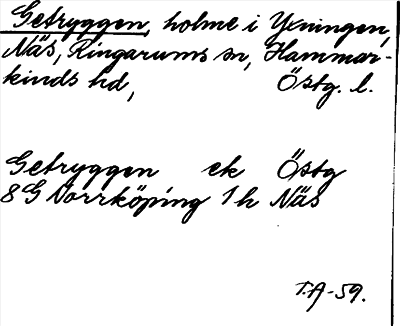 Getryggen, holme i Yxningen,
Näs, Ringarums sn, Hammar-
kinds hd, Östg. l.
Getryggen ek Östg
8G Norrköping 1h Näs
T.A-59.